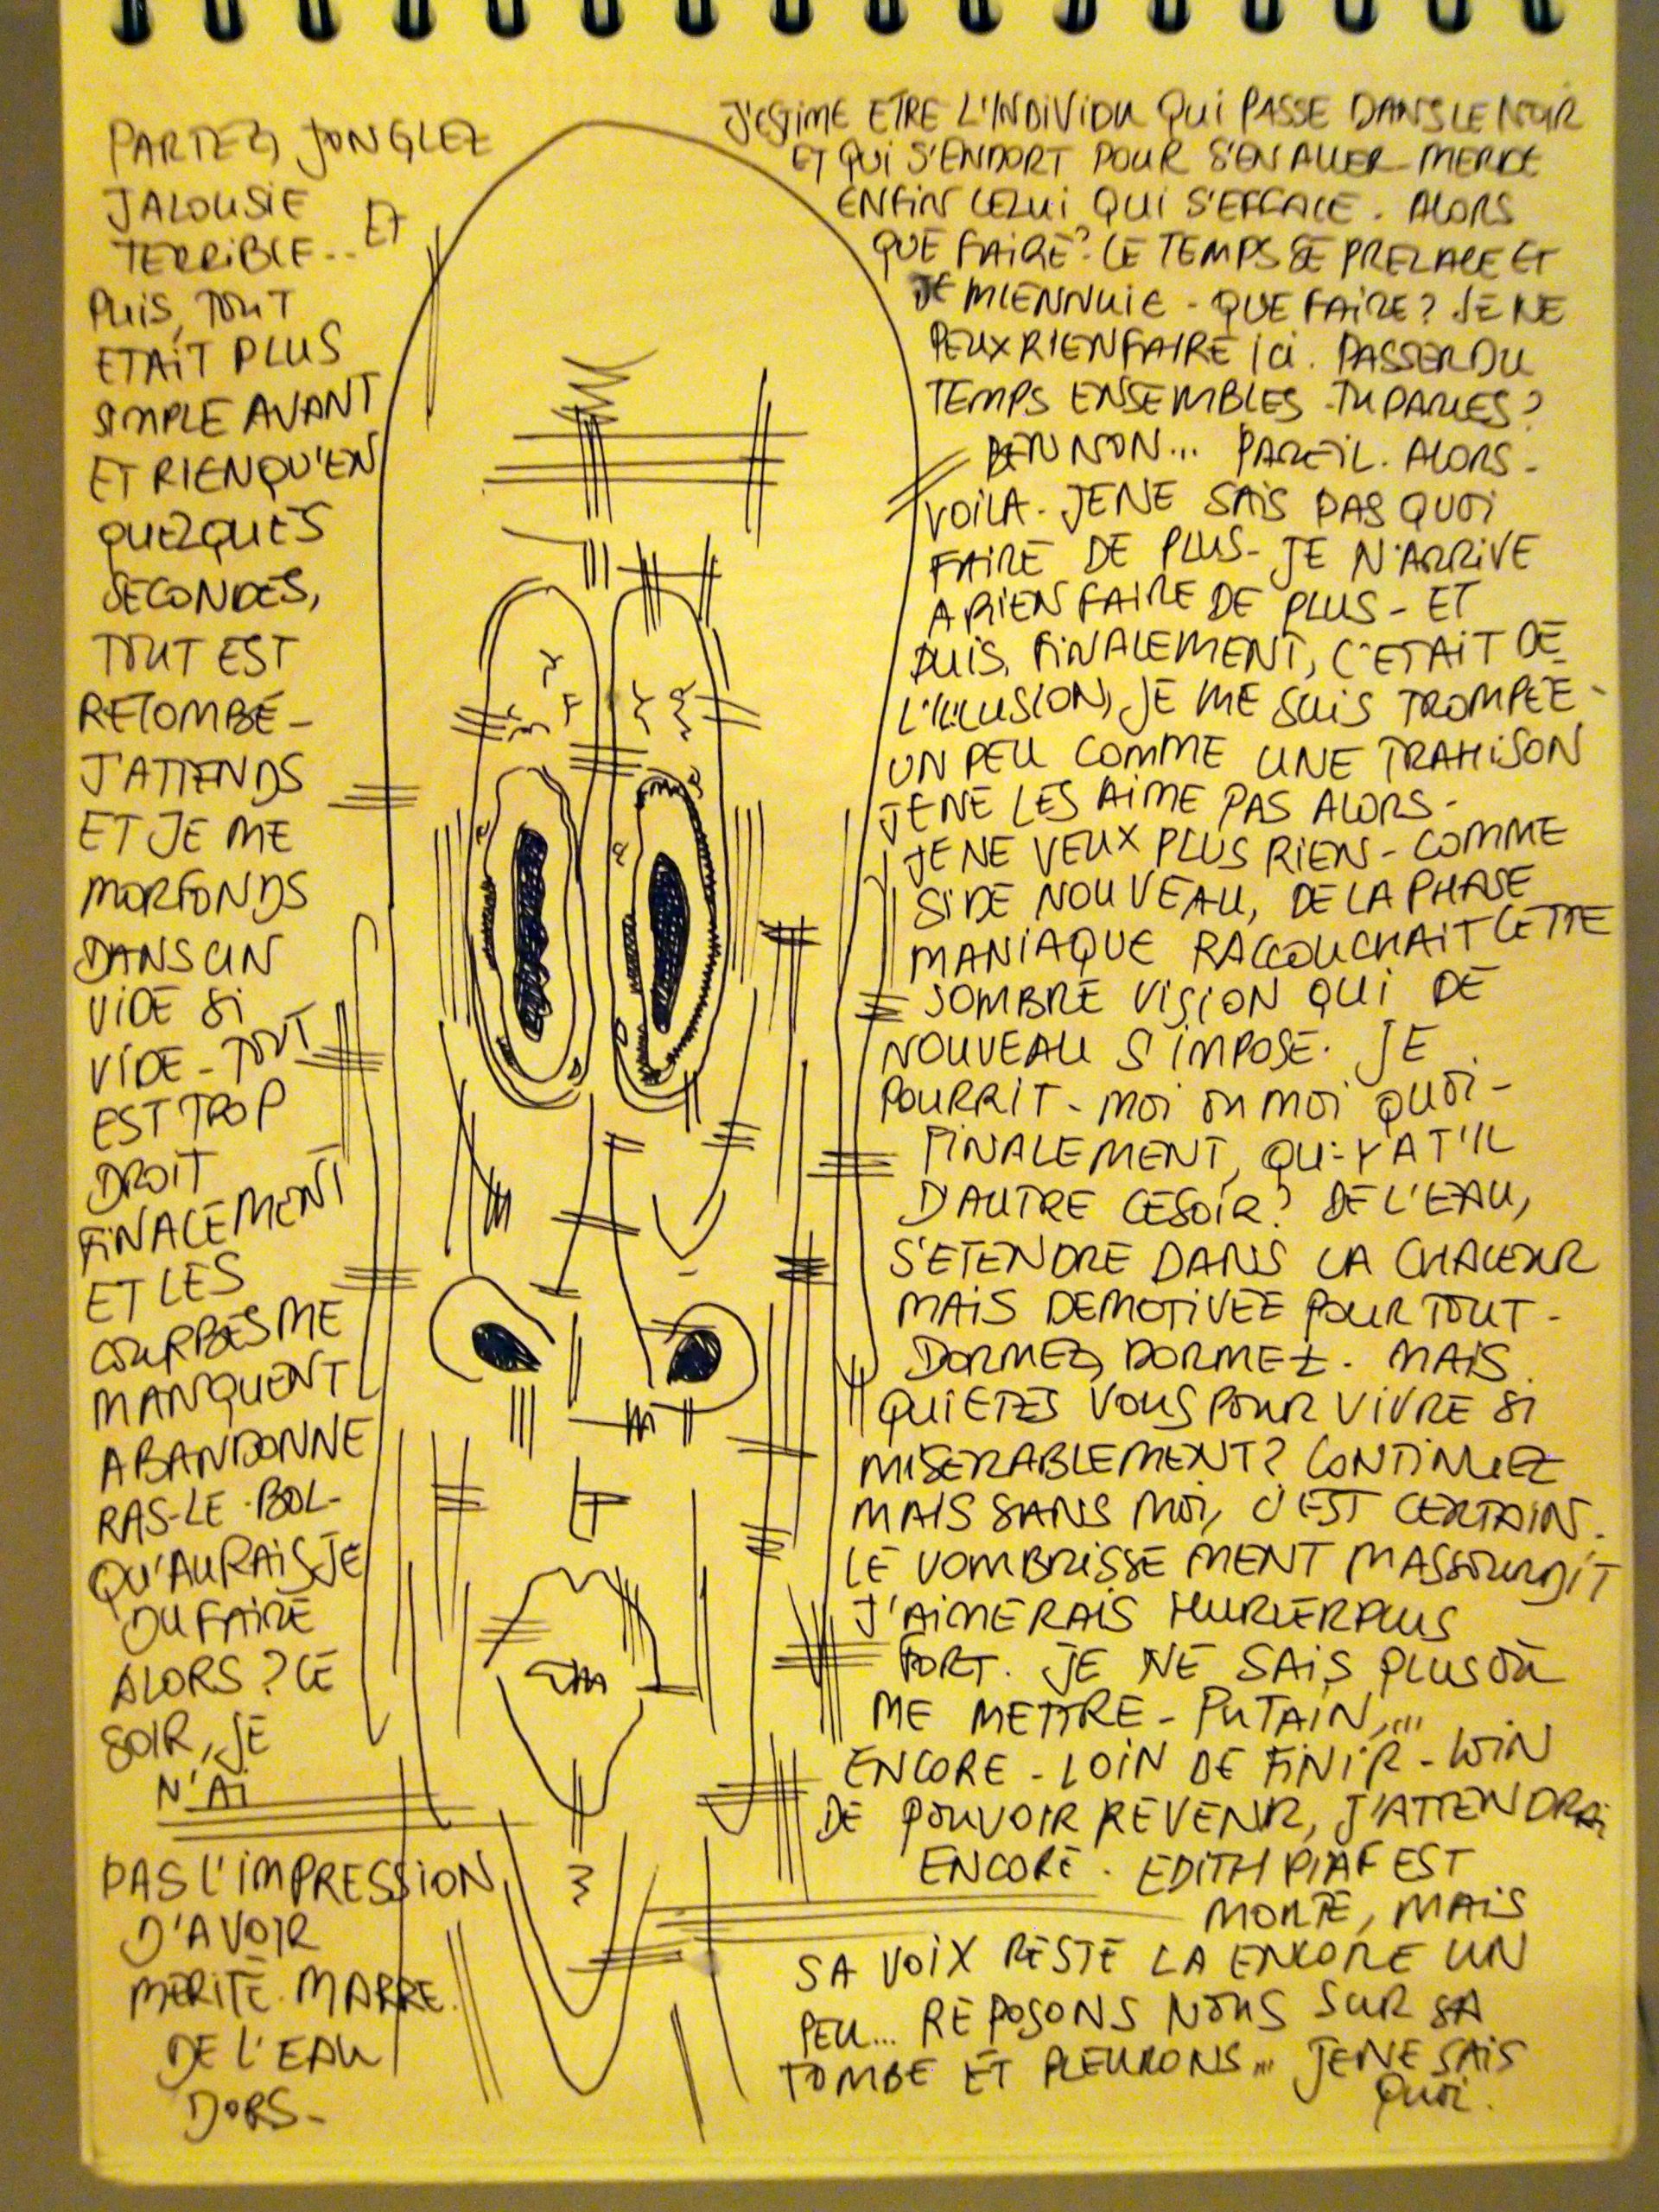 PARTEZ, JONGLEZ
JALOUSIE
TERRIBLE.. ET
PUIS, TOUT
ETAIT PLUS
SIMPLE AVANT
ET RIEN QU'EN
QUELQUES
SECONDES,
TOUT EST
RETOMBÉ -
J'ATTENDS
ET JE ME
MORFONDS
DANS UN
VIDE SI
VIDE - TOUT
EST TROP
DROIT
FINALEMENT
ET LES
COURBES ME
MANQUENT
ABANDONNE
RAS-LE-BOL-
QU'AURAIS JE
DU FAIRE
ALORS ? CE
SOIR, JE
N'AI
PAS L'IMPRESSION
D'AVOIR
MERITE. MARRE.
DE L'EAU
DORS -
J'ESTIME ETRE L'INDIVIDU QUI PASSE DANS LE NOIR
ET QUI S'ENDORT POUR S'EN ALLER - MERDE
ENFIN CELUI QUI S'EFFACE. ALORS
QUE FAIRE? LE TEMPS SE PRELACE ET
JE M'ENNUIE - QUE FAIRE? JE NE
PEUX RIEN FAIRE ICI. PASSER DU
TEMPS ENSEMBLES - TU PARLES?
BEN NON... PAREIL. ALORS -
VOILA - JE NE SAIS PAS QUOI
FAIRE DE PLUS - JE N'ARRIVE
A RIEN FAIRE DE PLUS - ET
PUIS, FINALEMENT, C'ETAIT DE
L'ILLUSION, JE ME SUIS TROMPÉE -
UN PEU COMME UNE TRAHISON
JE NE LES AIME PAS ALORS -
JE NE VEUX PLUS RIEN - COMME
SI DE NOUVEAU, DE LA PHASE
MANIAQUE RACCOUCHAIT CETTE
SOMBRE VISION QUI DE
NOUVEAU S'IMPOSE. JE
POURRIT - MOI OU MOI QUOI -
FINALEMENT, QU'Y'A T'IL
D'AUTRE CE SOIR? DE L'EAU,
S'ETENDRE DANS LA CHALEUR
MAIS DEMOTIVEE POUR TOUT -
DORMEZ, DORMEZ. MAIS
QUI ETES VOUS POUR VIVRE SI
MISERABLEMENT? CONTINUEZ
MAIS SANS MOI, C'EST CERTAIN.
LE VOMBRISSEMENT M'ASSOURDIT
J'AIMERAIS HURLER PLUS
FORT. JE NE SAIS PLUS OÙ
ME METTRE - PUTAIN,...
ENCORE - LOIN DE FINIR - LOIN
DE POUVOIR REVENIR, J'ATTENDRAI
ENCORE. EDITH PIAF EST
MORTE, MAIS
SA VOIX RESTE LA ENCORE UN
PEU... REPOSONS NOUS SUR SA
TOMBE ET PLEURONS... JE NE SAIS
QUOI.